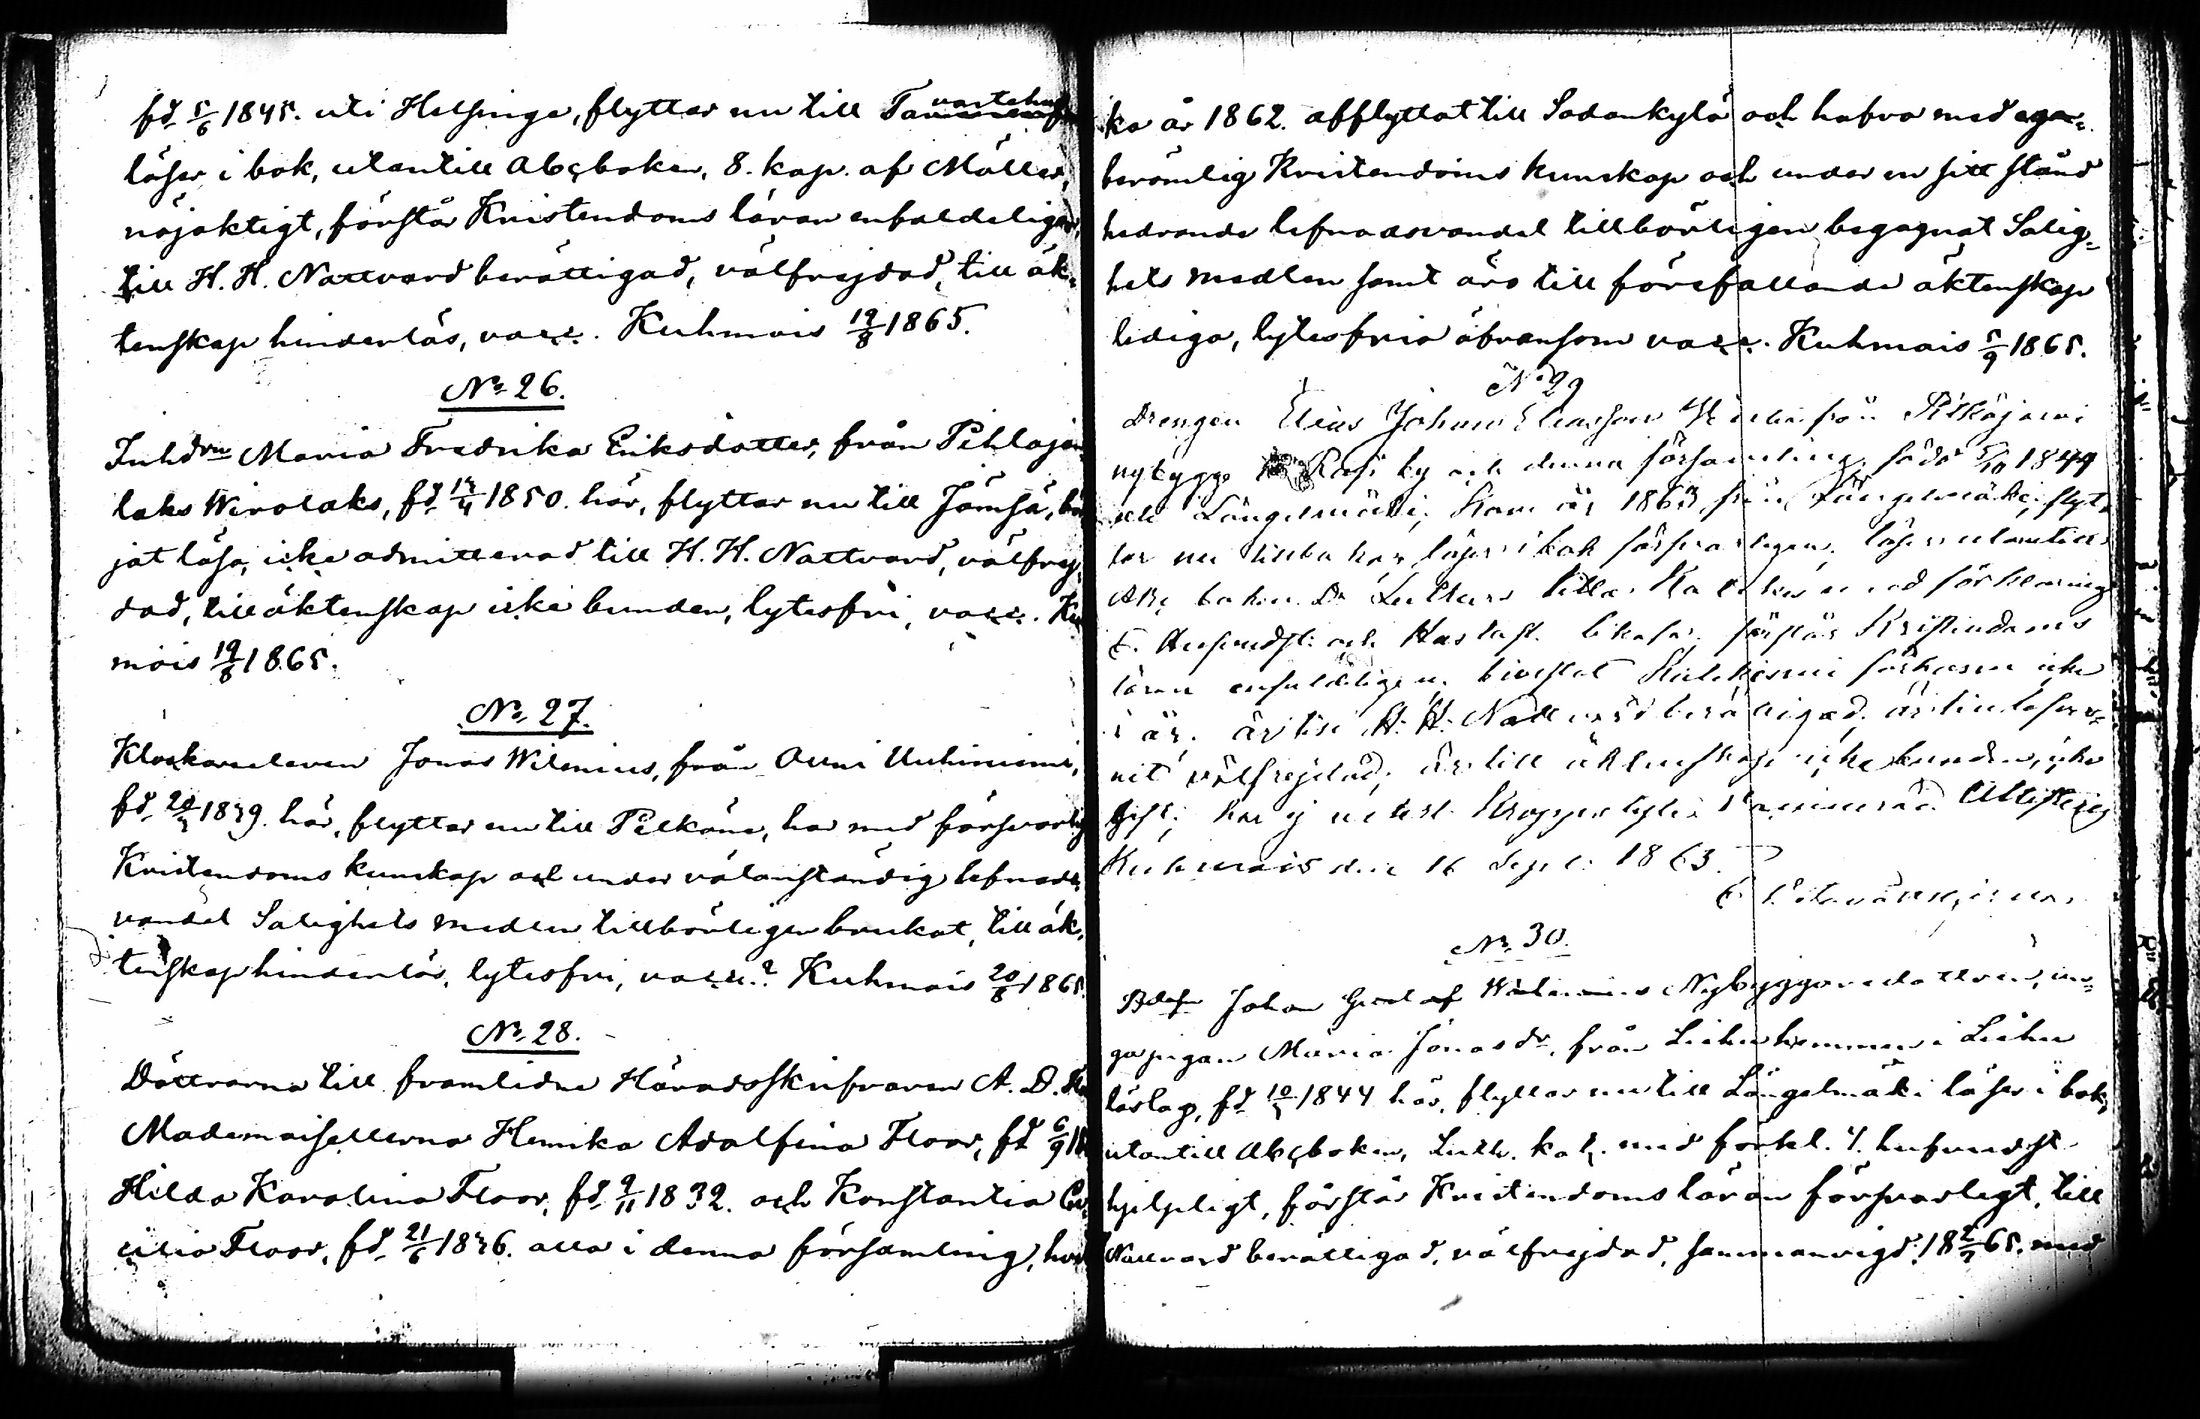 fd 5/6 1845. uti Helsinge, flyttar nu till Tavastehus
läser i bok, utantill Abcboken, 8. kap. af Möller,
nöjaktigt, förstår Kristendoms läran enfaldeligen,
till H. H. Nattvard berättigad, välfrejdad, till äk-
tenskap hinderlös, vacc. Kuhmois 19/8 1865.
No 26.
Inhdrn Maria Fredrika Eriksdotter, från Pihlaja
laks Wirolaks, fd 1850. här, flyttar nu till Jämsä, bör
jat läsa, icke admitterad till H. H. Nattvard, välfrej
dad, till äktenskap icke bunden, lytesfri, vacc. Ku
mois 19/8 1865.
No 27.
Klockareeleven Jonas Wilenius, från Auni Uuhiniemi,
fd 1839. här, flyttar nu till Pelkäne, har med försvarlig
Kristendoms kunskap och under välanständig lefnads-
vandel Salighets medlen tillbörligen brukat, till äk-
tenskap hinderlös, lytesfri, vacc.? Kuhmois 20/8 1865.
No 28.
Döttrarna till framlidne Häradsskrifvaren A. D.
Mademoisellerna Henrika Adolfina Floor, fd 6/9
Hilda Karolina Floor, fd 9/11 1832. och Konstantia Ce-
cilia Floor, fd 21/6 1836. alla i denna församling, hvil
ka år 1862. afflyttat till Sodankylä och hafva med
berömlig Kristendoms kunskap och under en sitt stånd
hedrande lefnadsvandel tillbörligen begagnat Salig-
hets medlen samt äro till förefallande äktenskap
lediga, lytesfria äfvensom vacc. Kuhmois 5/9 1865.
No 29
Drengen Elias Johan Eliasson från
nybygge by och denna församling, född 1849
uti Längelmäki, kom år 1863 från Längelmäki, flyt-
tar nu tillbakar, läser i bok försvarligen, läser utantill
Abc boken Dr Luthers lilla Kateches med förklaring
och Hustafl. likaså, förstår Kristendoms
läran enfaldeligen, bivistat förhören icke
i år, är till H. H. Nattvard berättigad,
välfrejdad, är till äktenskap icke bunden, icke
gift, har
Kuhmois den 16 Sept. 1863.
No 30.
Johan Gustaf Nybyggaredottren, in-
ga pigan Maria Jonasdr, från Liehu hemman i Liehu
läslag, fd 1844 här, flyttar nu till Längelmäki läser i bok,
utantill Abcboken, Luth. kat. med förkl. 4. hufvudst
hjelpligt, förstår Kristendoms läran försvarligt, till
Nattvard berättigad, välfrejdad, sammanvigd 18 65. med